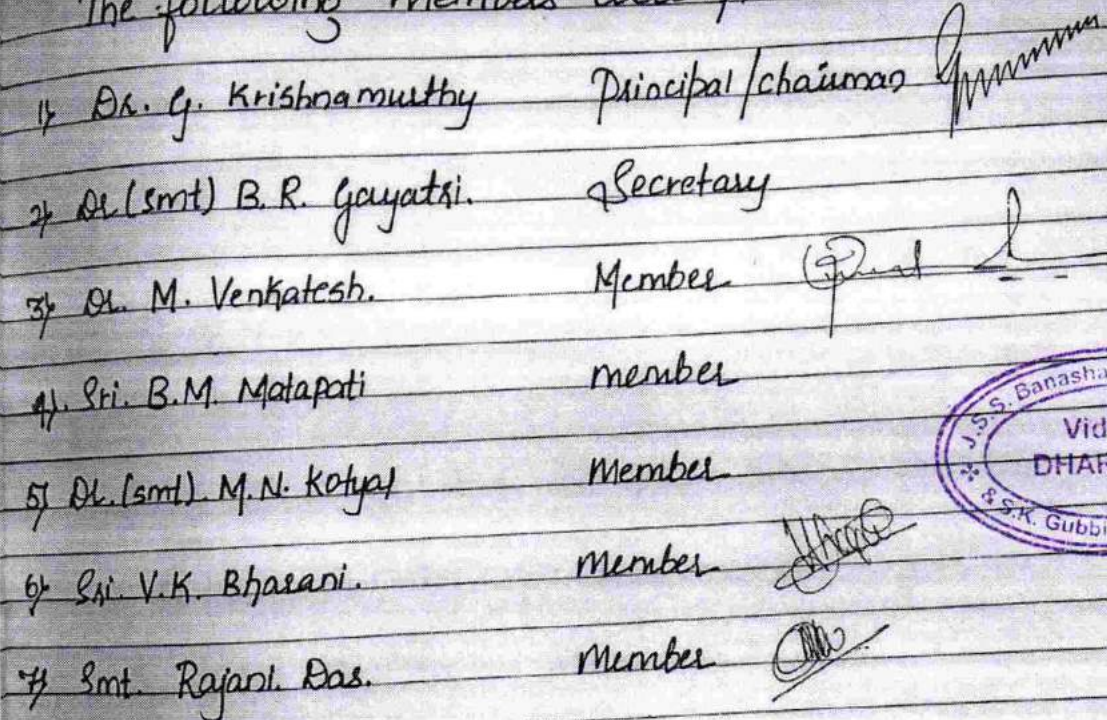 The following Members
1) Dr. G. Krishnamurthy Principal/chairman
2) Dr (smt) B. R. Gayatri. Secretary
3) Dr. M. Venkatesh. Member
4). Sri. B.M. Matapati member
5) Dr. (smt). M.N. Kotyal Member
6) Sri. V.K. Bharani. Member
7) Smt. Rajani. Das. Member
J.S.S. Banasha
Vid
DHAR
& S.K. Gubbi